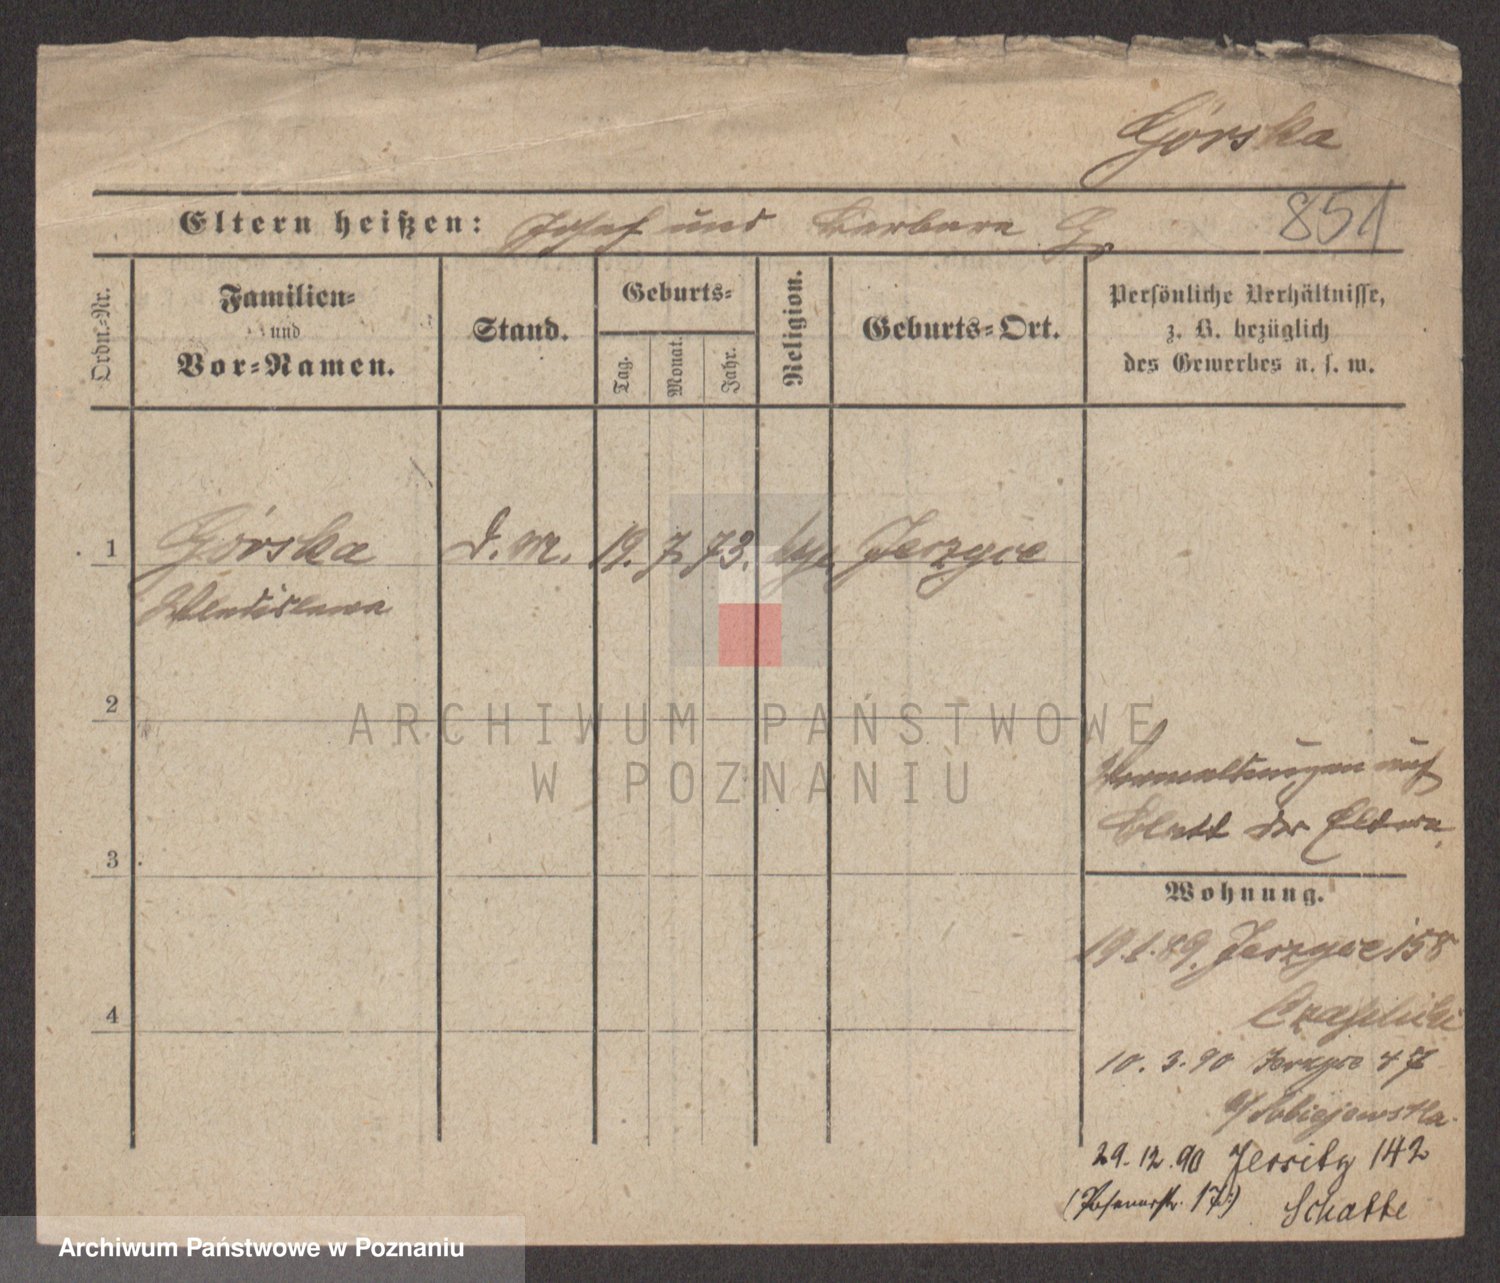 Górska
851
Eltern heißen: Josef und Barbara G.
Ordn.-Nr.
Familien-
und
Vor-Namen.
Stand.
Geburts-
Tag.
Monat.
Jahr.
Religion.
Geburts-Ort.
Persönliche Verhältnisse,
z. B. bezüglich
des Gewerbes u. s. w.
1 Górska d. M. 19. 7. 73. Jerzyce
Wladislawa
2
3
4
ARCHIWUM PAŃSTWOWE
W POZNANIU
auf
Blatt der Eltern.
Wohnung.
19.1.89. Jerzyce 158
Czaplicki
10. 3. 90 Jerzyce 47
b/ Sobiejewska.
29. 12. 90 Jersitz 142
(Posenerstr. 17.) Schatte
Archiwum Państwowe w Poznaniu